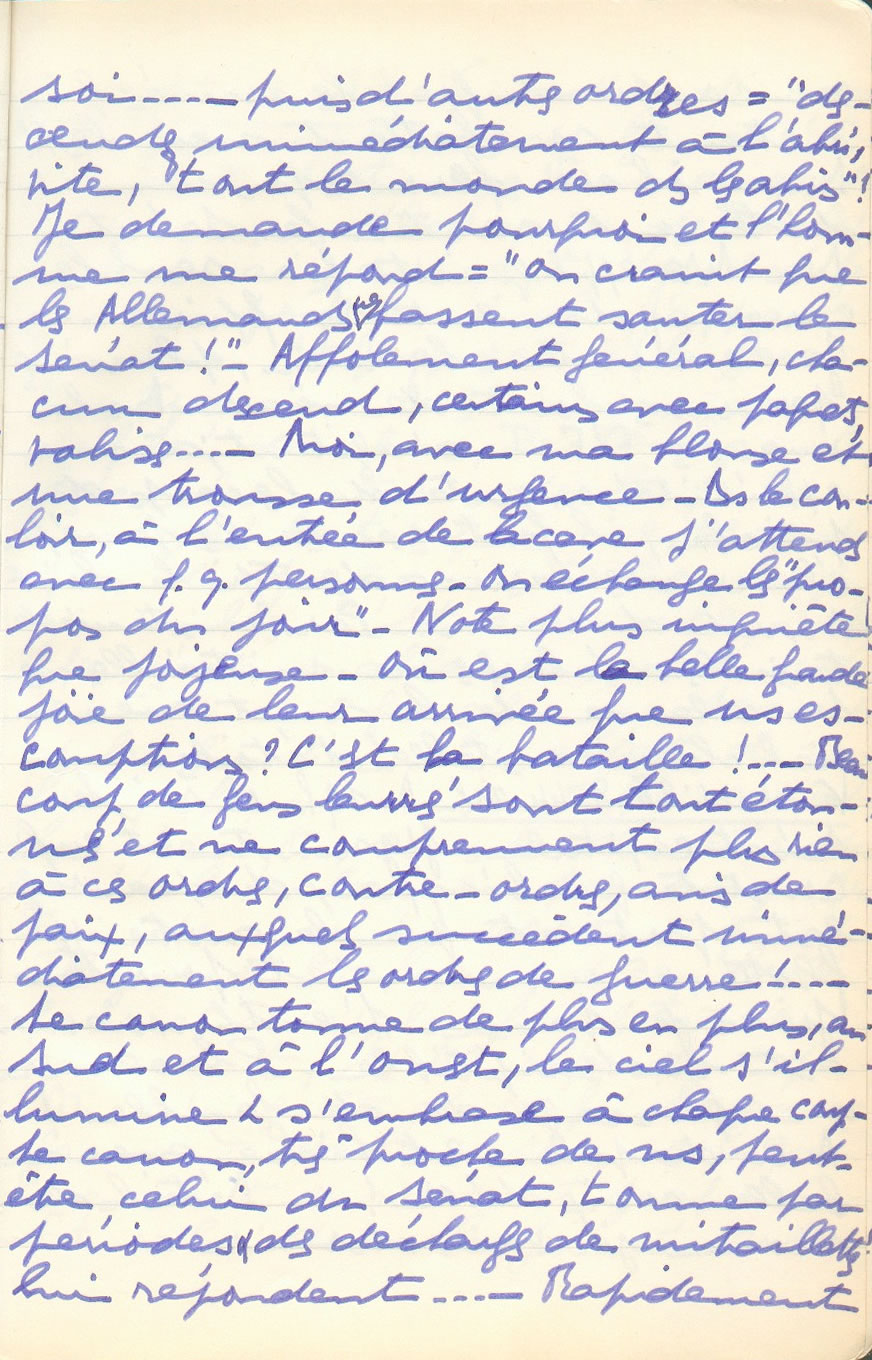 soi---- puis d'autres ordres = "des-
cendez immédiatement à l'abri,
vite, tout le monde ds les abris"!
Je demande pourquoi et l'hom-
me me répond = "on craint que
les Allemands ne fassent sauter le
sénat!"- Affolement général, cha-
cun descend, certains avec papiers,
valises---- Moi, avec ma blouse et
une trousse d'urgence - Ds le cou-
loir, à l'entrée de la cave j'attends
avec q.q. personnes - on échange les "pro-
pos du jour"- Note plus inquiète
que joyeuse - où est la belle grande
joie de leur arrivée que ns es-
comptions? C'est la bataille!--- Beau
coup de gens leurrés sont tout éton-
nés et ne comprennent plus rien
à ces ordres, contre-ordres, avis de
paix, auxquels succèdent immé-
diatement les ordres de guerre!----
Le canon tonne de plus en plus, au
Sud et à l'ouest, le ciel s'il-
lumine & s'embrase à chaque coup-
Le canon, très proche de ns, peut-
être celui du Sénat, tonne par
périodes & des décharges de mitraillettes
lui répondent---- Rapidement